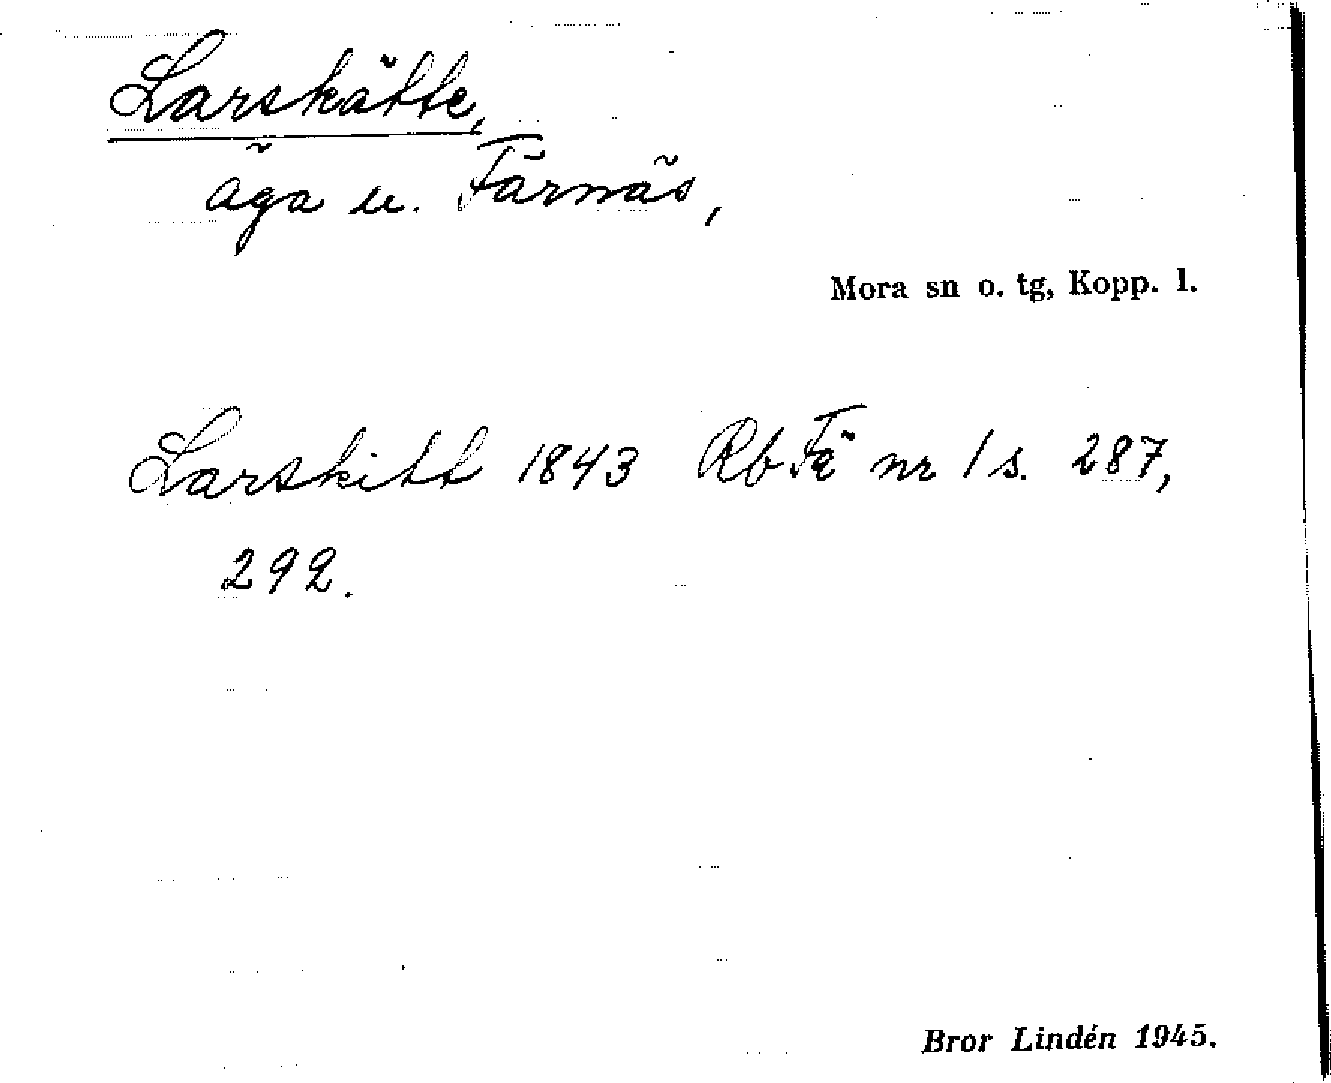 Larskätte,
äga u. Färnäs,
Mora sn o. tg, Kopp. l.
Larskitt 1843 Rb Fä nr 1 s. 287,
292.
Bror Lindén 1945.